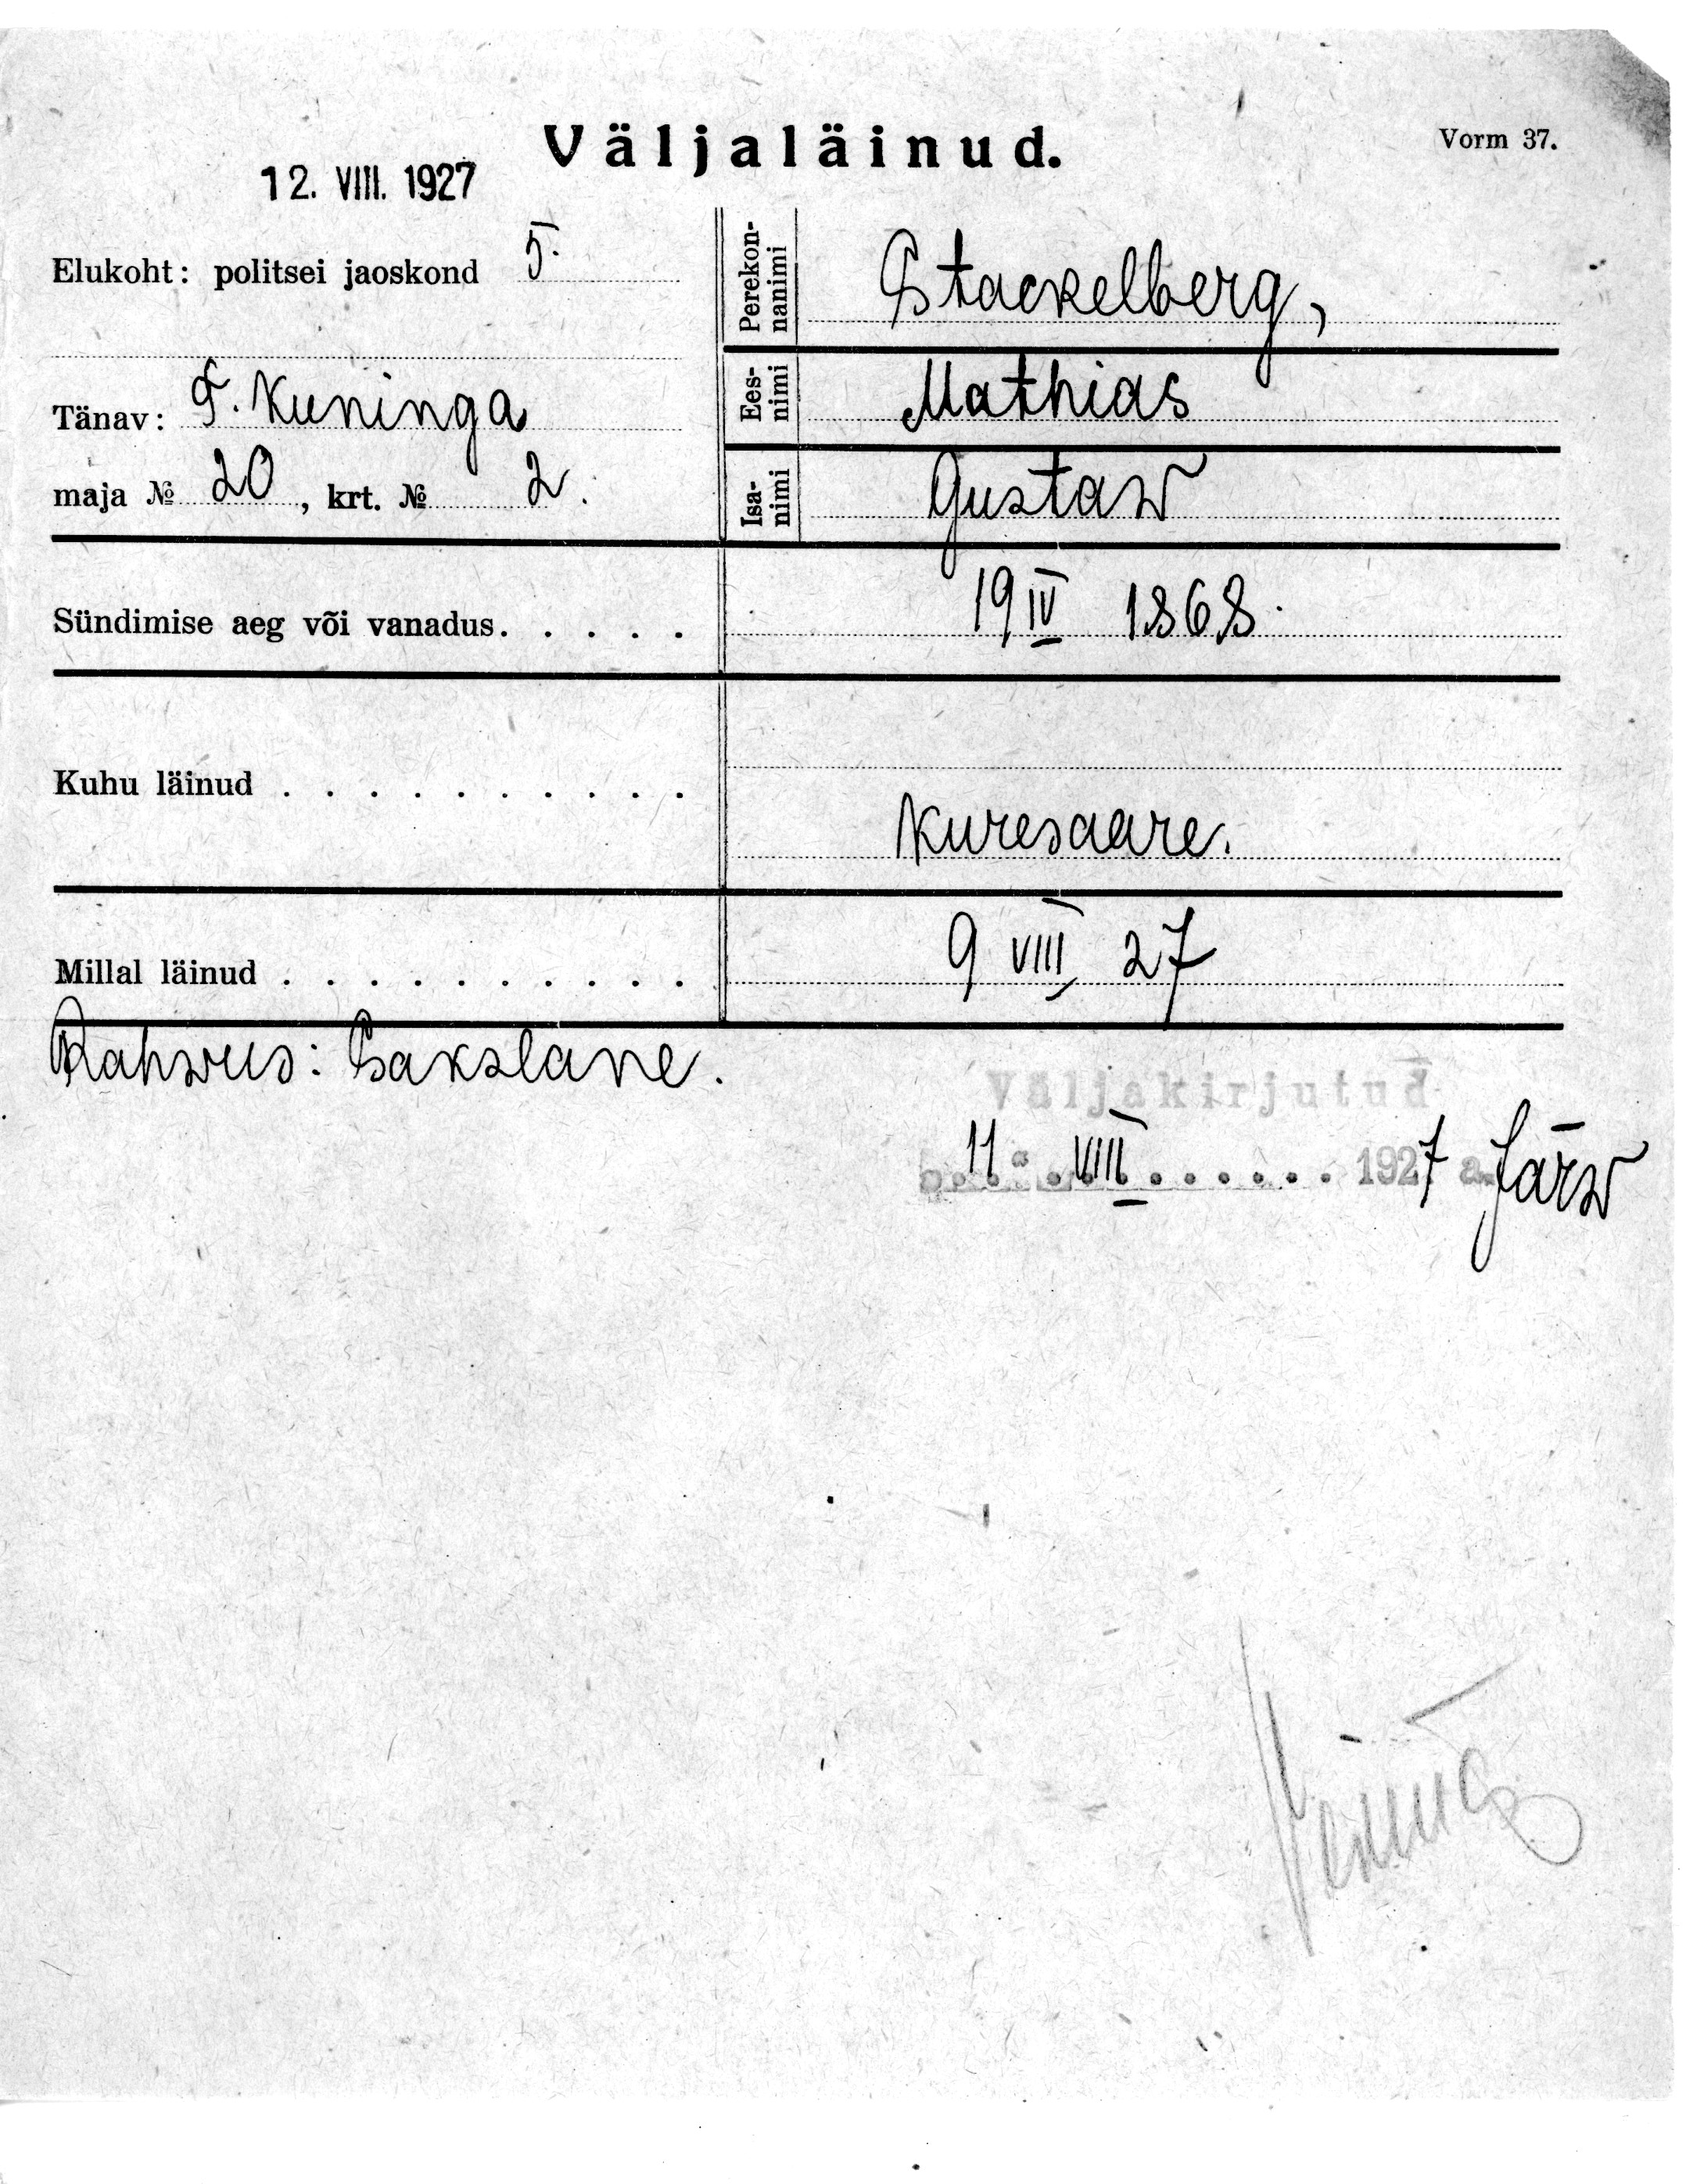 Väljaläinud.
Vorm 37.
12. VIII. 1927
Elukoht: politsei jaoskond 5.
Tänav: T. Kuninga
maja № 20, krt. № 2.
Perekon-
nanimi
Stackelberg,
Ees-
nimi
Mathias
Isa-
nimi
Gustaw
Sündimise aeg või vanadus. . . . . 19 IV 1868.
Kuhu läinud . . . . . . . . . . Kuresaare.
Millal läinud . . . . . . . . . . 9 VIII 27
Rahwus: Sakslane.
Väljakirjutud
„11“ . VIII . . . . . . 1927 a. Järw